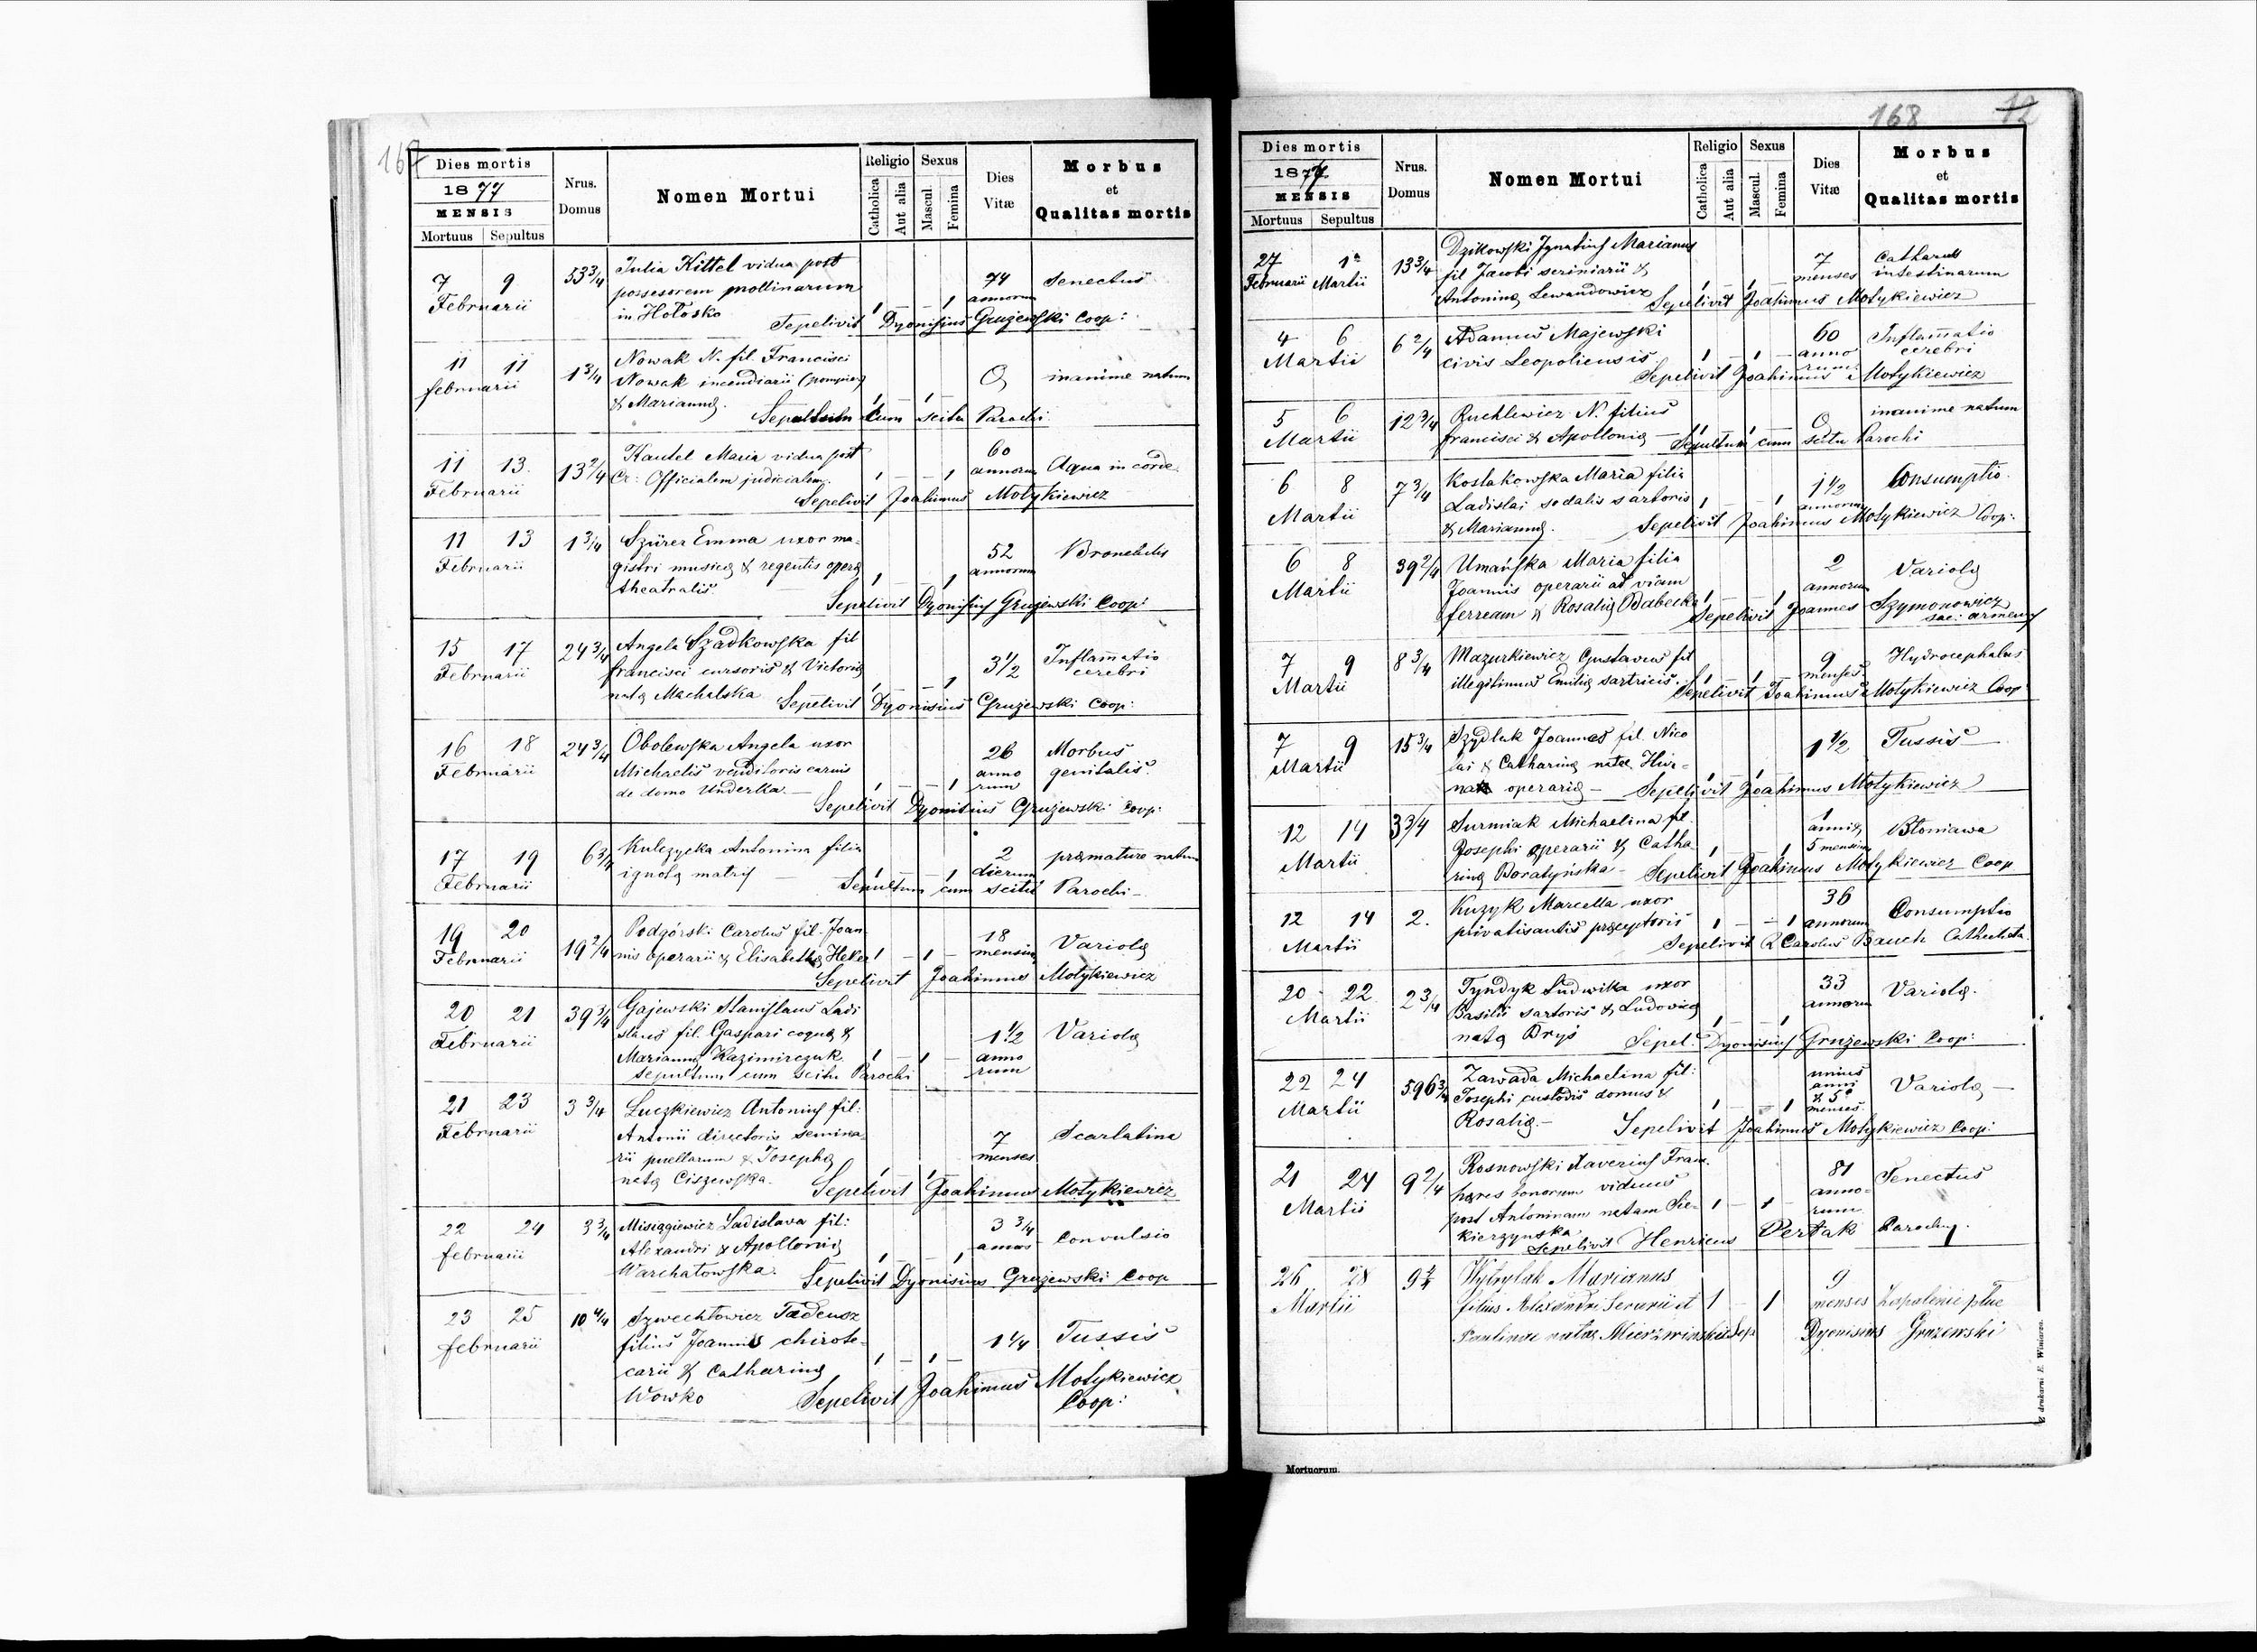 167
Dies mortis
1877
MENSIS
Mortuus Sepultus
Nrus. Domus
Nomen Mortui
Religio
Catholica
Aut alia
Sexus
Mascul.
Femina
Dies Vitæ
Morbus
et
Qualitas mortis
7 9 53 3/4 Julia Kittel vidua post 74 Senectus
Februarii possessorem mollinarum annorum
in Hołosko 1 – – 1
Sepelivit Dyonisius Grużewski Coop:
11 11 1 3/4 Nowak N. fil. Francisci 0 inanime natum
februarii Nowak incendiarii (pompier)
& Mariannę. 1 – 1
Sepultum cum scitu Parochi
11 13. 13 2/4 Kautel Maria vidua post 60 Aqua in corde
Februarii Cr: Officialem judicialem. 1 – – 1 annorum
Sepelivit Joahimus Motykiewicz
11 13 1 3/4 Szürer Emma uxor ma- 52 Bronchitis
Februarii gistri musicę & regentis operę annorum
theatralis. 1 – – 1
Sepelivit Dyonisius Grużewski Coop:
15 17 24 3/4 Angela Szadkowska fil 3 1/2 Inflam̄atio
Februarii francisci cursoris & Victorię cerebri
natę Machalska 1 – – 1
Sepelivit Dyonisius Grużewski Coop:
16 18 24 3/4 Obolewska Angela uxor 26 Morbus
Februarii Michaelis venditoris carnis anno genitalis.
de domo Underka – 1 – – 1 rum
Sepelivit Dyonisius Grużewski Coop:
17 19 6 3/4 Kulczycka Antonina filia 2 præmature natum
Februarii ignotę matris – 1 – – 1 dierum
Sepultum cum scitu Parochi –
19 20 19 2/4 Podgórski Carolus fil. Joan 18 Variolę
Februarii nis operarii & Elisabethę Heker 1 – 1 mensium
Sepelivit Joahimus Motykiewicz
20 21 39 3/4 Gajewski Stanislaus Ladi 1 1/2 Variolę
Februarii slaus fil. Gaspari coquę & anno
Mariannę Kazimirczuk. 1 – 1 – rum
Sepultum cum scitu Parochi
21 23 3 3/4 Luczkiewicz Antonius fil: 7 Scarlatina
Februarii Antonii directoris semina- menses
rii puellarum & Josephę
natę Ciszewska. 1 – 1
Sepelivit Joahimus Motykiewicz
22 24 3 3/4 Misiągiewicz Ladislava fil: 3 3/4 Convulsio
februarii Alexandri & Apollonię annos
Warchatowska. 1 – – 1
Sepelivit Dyonisius Grużewski Coop
23 25 10 4/4 Szwechtowicz Tadeusz 1 1/4 Tussis
februarii filius Joannis chirote-
carii & Catharinę 1 – 1 –
Wowko Sepelivit Joahimus Motykiewicz
Coop:
168 12
Dies mortis
1877
MENSIS
Mortuus Sepultus
Nrus. Domus
Nomen Mortui
Religio
Catholica
Aut alia
Sexus
Mascul.
Femina
Dies Vitæ
Morbus
et
Qualitas mortis
27 1a 13 3/4 Dzikowski Ignatius Marianus 7 Catharus
Februarii Martii fil Jacobi seriniarii & 1 – 1 – menses intestinarum
Antoninę Lewandowicz Sepelivit Joahimus Motykiewicz
4 6 6 2/4 Adamus Majewski 60 Inflam̄atio
Martii civis Leopoliensis. 1 – 1 – anno cerebri
rum
Sepelivit Joahimus Motykiewicz
5 6 12 3/4 Ruchlewicz N. filius 0 inanime natum
Martii francisci & Apollonię – Sepultum cum scitu Parochi
6 8 7 3/4 Koslakowska Maria filia 1 1/2 Consumptio.
Martii Ladislai sodalis sartoris 1 – – 1 annorum
& Mariannę. Sepelivit Joahimus Motykiewicz Coop:
6 8 39 2/4 Umańska Maria filia 2 Variolę
Martii Joannis operarii ad viam annorum
ferream & Rosalię Babecka 1 – – 1
Sepelivit Joannes Szymonowicz
sac: armenus
7 9 8 3/4 Mazurkiewicz Gustavus fil 9 Hydrocephalus
Martii illegitimus Emilię sartricis. 1 – 1 – menses
Sepelivit Joahimus Motykiewicz Coop
7 9 15 3/4 Szydluk Joannes fil. Nico 1 1/2 Tussis –
Martii lai & Catharinę natæ Hiw-
na operarię – Sepelivit Joahimus Motykiewicz
12 14 3 3/4 Surmiak Michaelina fil. 1 Błoniawa
Martii Josephi operarii & Catha- 1 – – 1 anni & 5 mensium
rinę Boratyńska – Sepelivit Joahimus Motykiewicz Coop
12 14 2. Kuzyk Marcella uxor 36 Consumptio
Martii privatisantis præceptoris 1 – – 1 annorum
Sepelivit R Carolus Bauch Cathecheta.
20 – 22. 2 3/4 Tyndyk Ludwika uxor 33 Variolę.
Martii Basilii sartoris & Ludovicę annorum
natę Bryś 1 – – 1
Sepel: Dyonisius Grużewski Coop:
22 24 596 3/4 Zawada Michaelina fil: unius Variolę –
Martii Josephi custodis domus & anni & 5e
Rosalię. – 1 – – 1 menses.
Sepelivit Joahimus Motykiewicz Coop:
21 24 9 2/4 Rosnowski Xaverius Fran. 81 Senectus
Martii hæres bonorum viduus anno-
post Antoninam natam Sie- 1 – 1 – rum
kierzynska
Sepelivit Henricus Pertak Parochus.
26 28 9 2/4 Wytrylak Marianus 9
Martii filius Alexandri Serarii et 1 – 1 menses Zapalenie płuc
Paulinae natae Mierzwinskie Sep Dyonisius Grużewski
Mortuorum.
Z drukarni E. Winiarza.